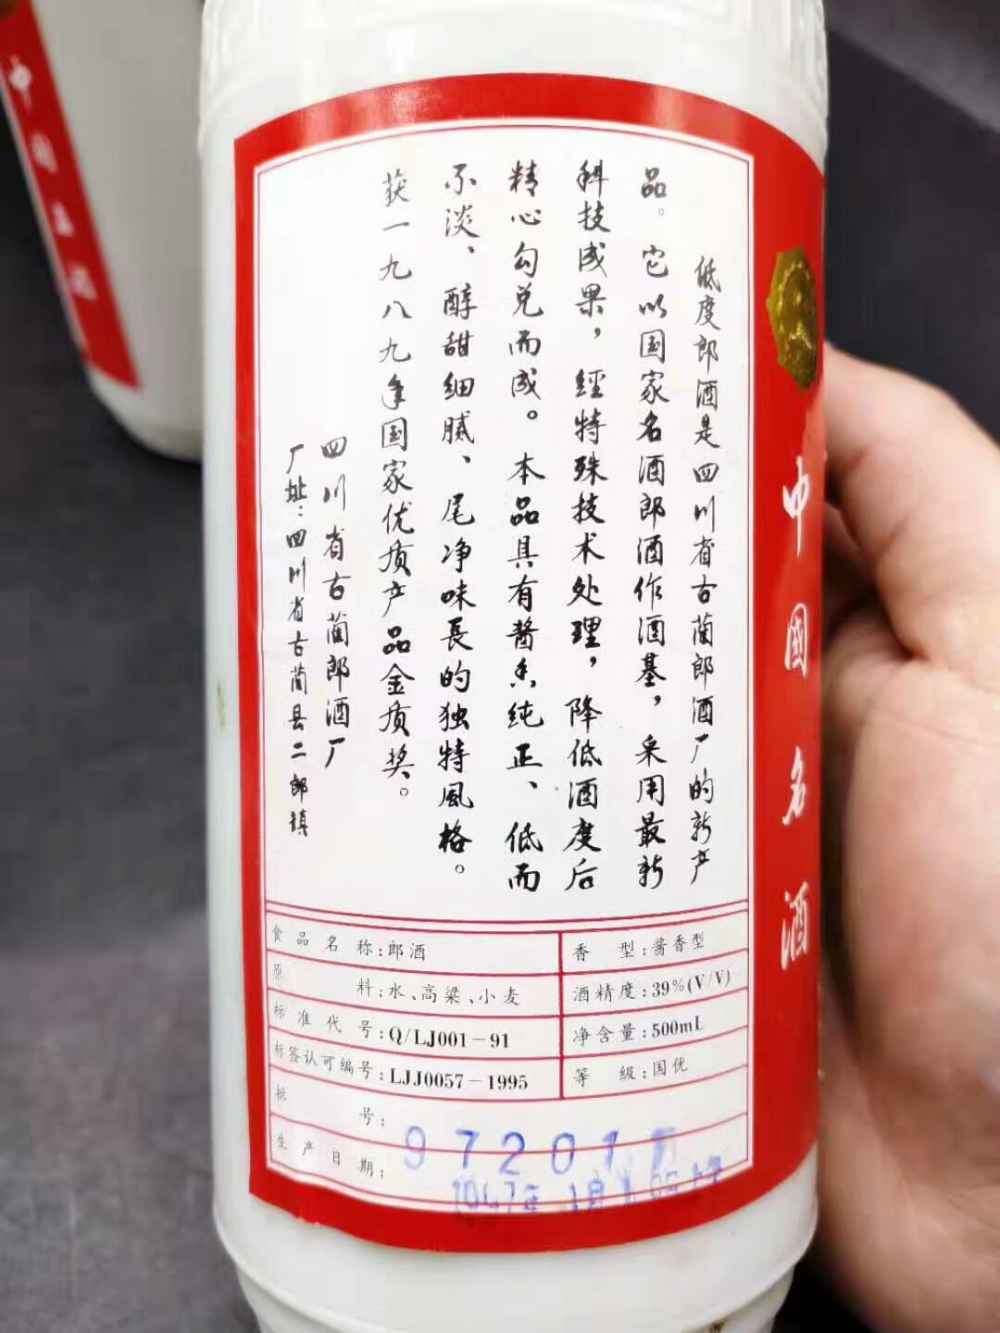 低度郎酒是四川省古蔺郎酒厂的新产
品。它以国家名酒郎酒作酒基，采用最新
科技成果，經特殊技术处理，降低酒度后
精心勾兑而成。本品具有酱香纯正、低而
不淡、醇甜细腻、尾净味長的独特風格。
获一九八九年国家优质产品金质奖。
四川省古蔺郎酒厂
厂址：四川省古蔺县二郎镇
中國名酒
食品名称：郎酒
香型：酱香型
原料：水、高粱、小麦
酒精度：39%(V/V)
标准代号：Q/LJ001－91
净含量：500mL
标签认可编号：LJJ0057－1995
等级：国优
批号：
97201
生产日期：
中國名酒